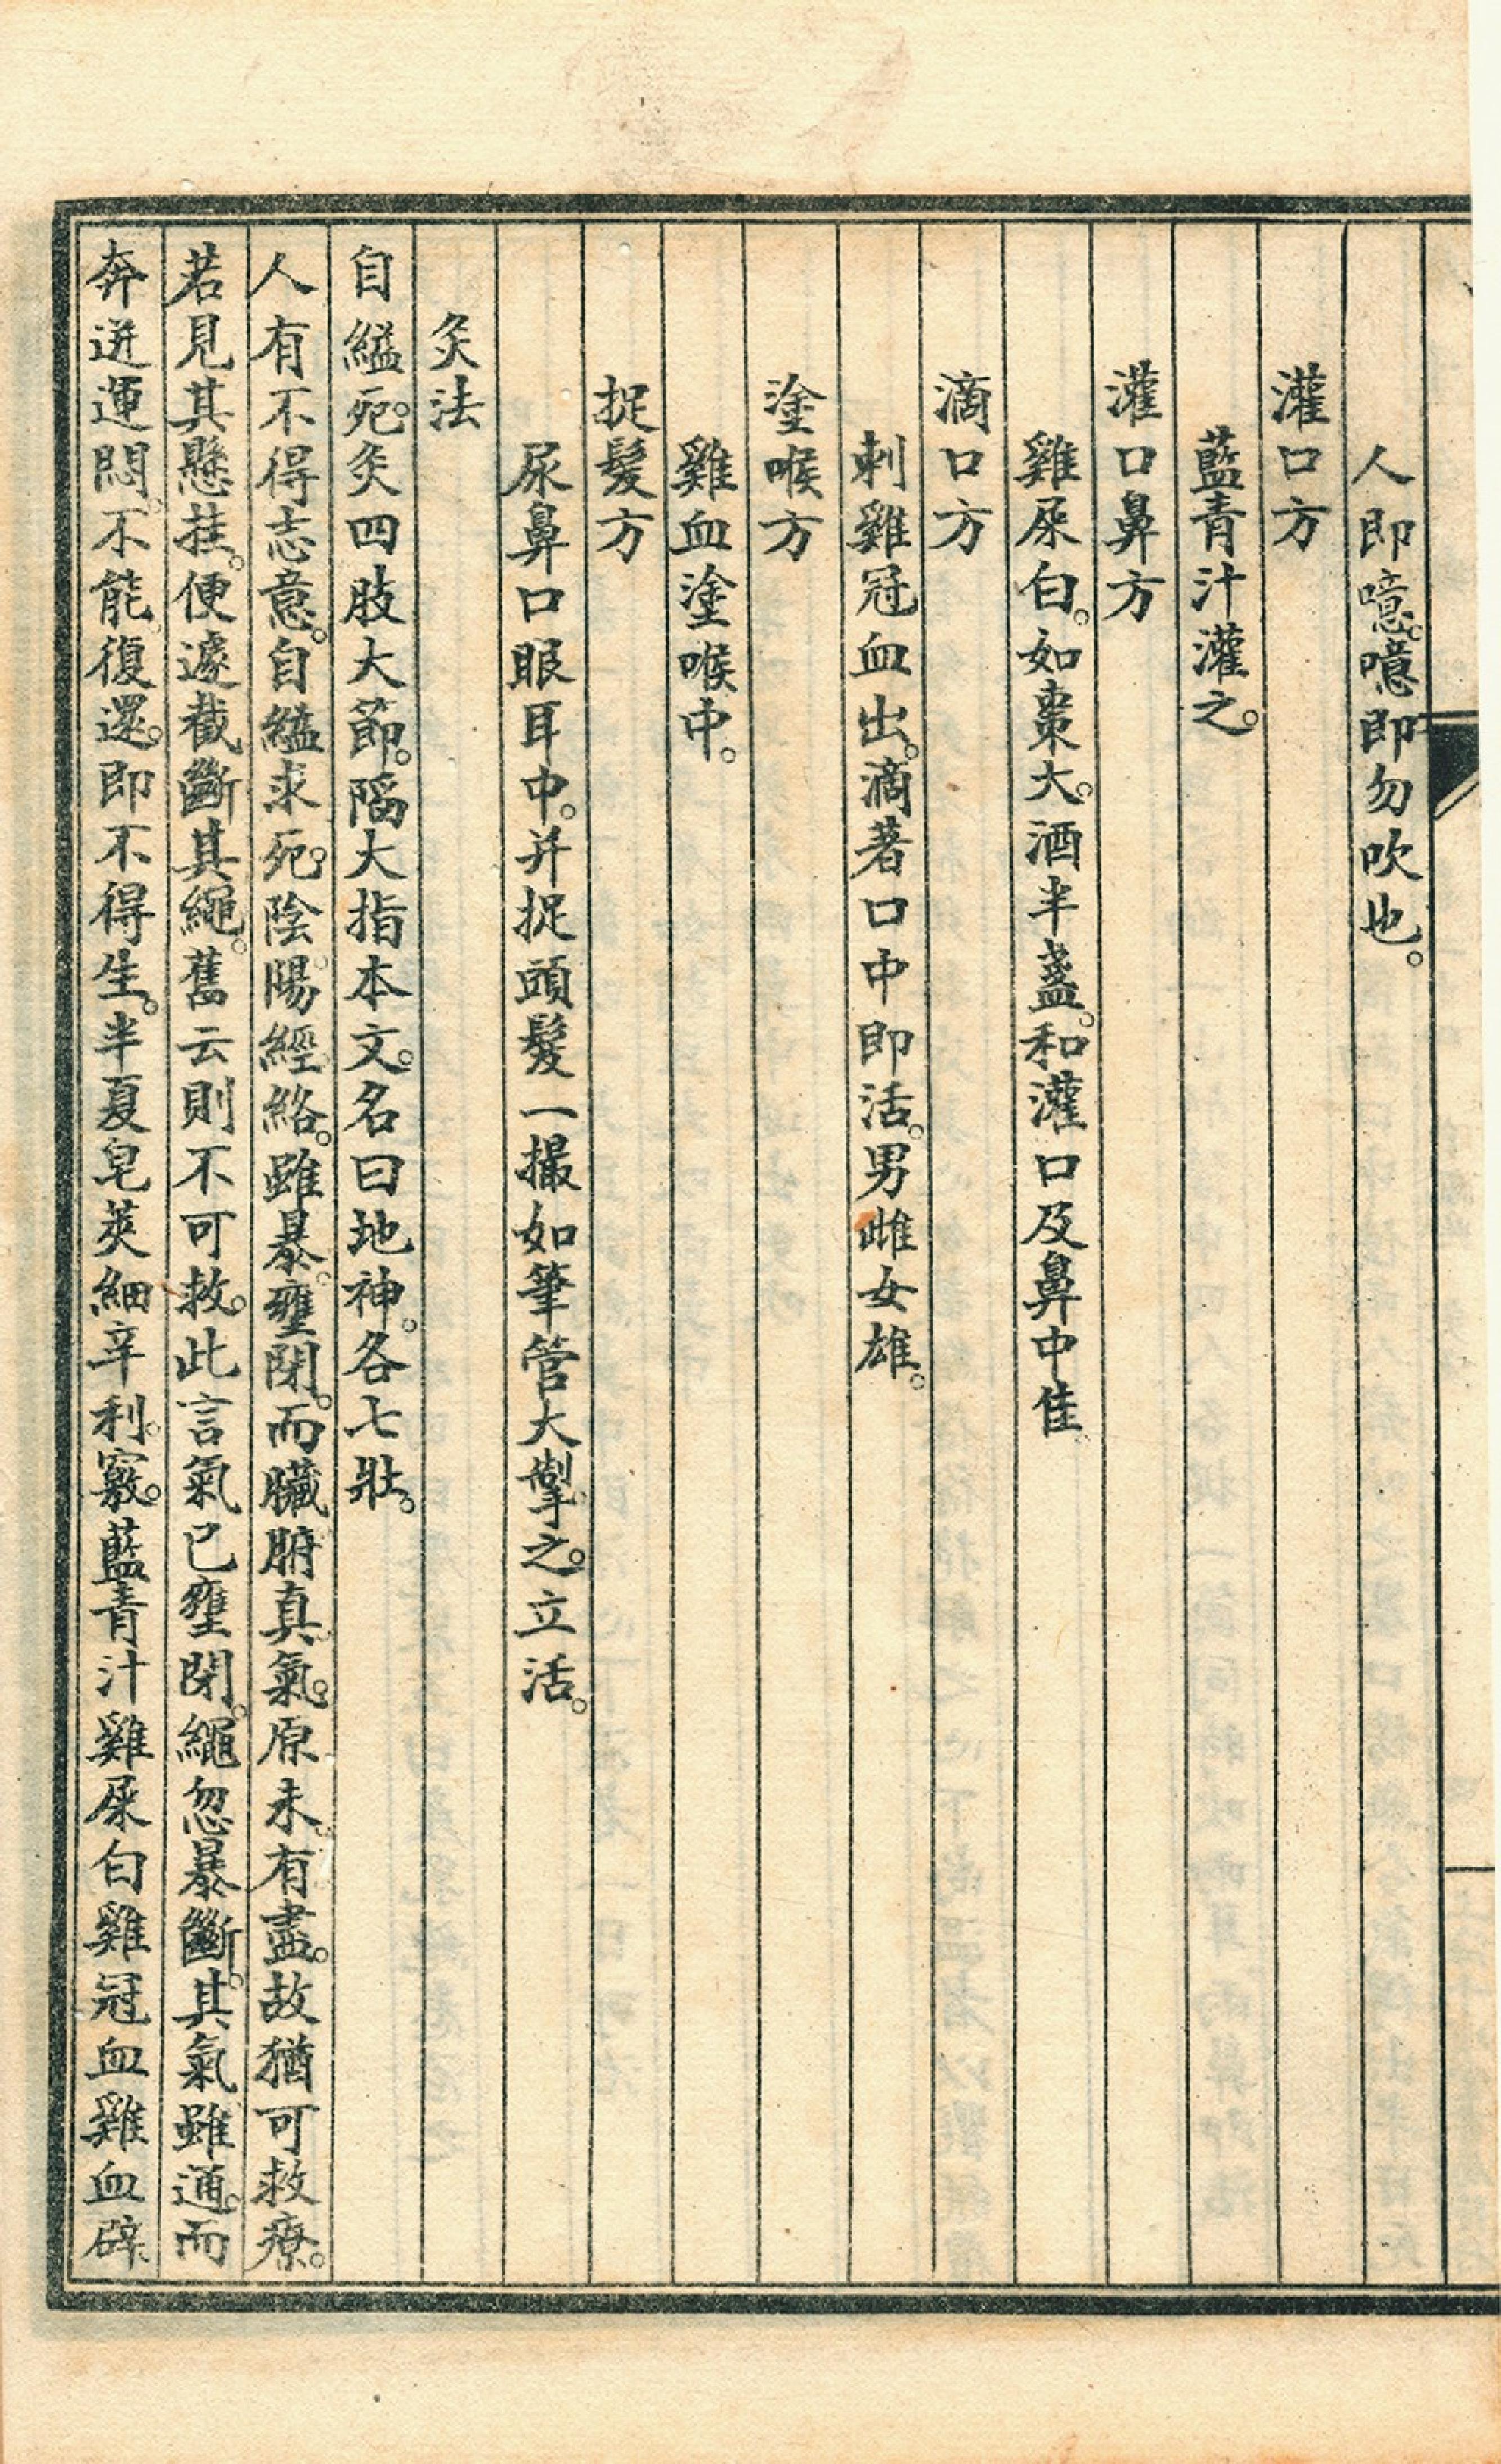 人即噫。噫即勿吹也。
灌口方
藍青汁灌之。
灌口鼻方
雞屎白。如棗大。酒半盞。和灌口及鼻中佳。
滴口方
刺雞冠血出。滴著口中即活。男雌女雄。
塗喉方
雞血塗喉中。
捉髮方
尿鼻口眼耳中。并捉頭髮一撮如筆管大掣之。立活。
灸法
自縊死。灸四肢大節。陷大指本文。名曰地神。各七壯。
人有不得志意。自縊求死。陰陽經絡。雖暴壅閉。而臟腑真氣。原未有盡。故猶可救療。
若見其懸挂。便遽截斷其繩。舊云則不可救。此言氣已壅閉。繩忽暴斷。其氣雖通。而
奔迸運悶。不能復還。即不得生。半夏皂莢細辛利竅。藍青汁雞屎白雞冠血雞血辟